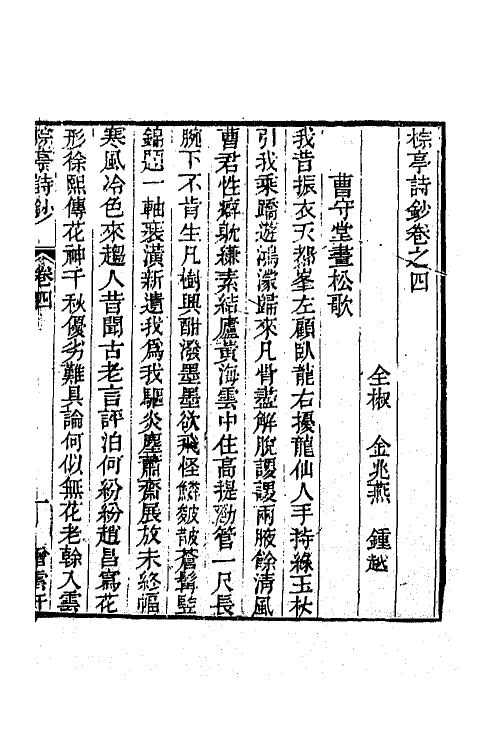 棕亭詩鈔卷之四
全椒　金兆燕　鍾越
曹守堂畫松歌
我昔振衣天都峯左顧臥龍右擾龍仙人手持綠玉杖
引我乘蹻遊鴻濛歸來凡骨盡解脫謖謖兩腋餘清風
曹君性癖躭縑素結廬黃海雲中住高提勁管一尺長
腕下不肯生凡樹興酣潑墨墨欲飛怪鱗皴皵蒼髯豎
錦題一軸裝潢新遺我爲我驅炎塵蕭齋展放未終幅
寒風冷色來趨人昔聞古老言評泊何紛紛趙昌寫花
形徐熙傳花神千秋優劣難具論何似無花老榦入雲
棕亭詩鈔
卷四
一
贈雲軒